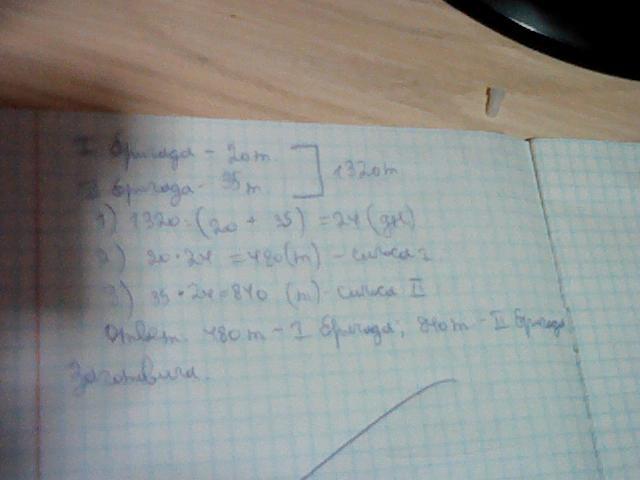 I бригада - 20 т
II бригада - 35 т
1320 т
1) 1320 : (20 + 35) = 24 (дн)
2) 20 · 24 = 480 (т) - силоса I
3) 35 · 24 = 840 (т) - силоса II
Ответ. 480 т - I бригада; 840 т - II бригада
Заготовила.